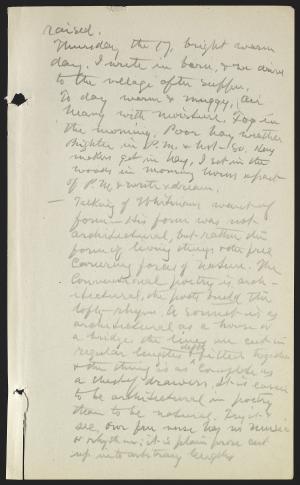 raised.
Thursday the 17, bright warm
day. I write in barn, & we drive
to the village after supper.
To day warm & muggy, air
heavy with moisture. Fog in
the morning. Poor hay weather
Brighter in P.M. & hot - So. Hay
makers get in hay, I sit in the
woods in morning hours & part
of P.M. & write & dream.
— Talking of Whitmans want of
form — His form was not
architectural, but rather the
form of living things & the free
careering forces of nature. The
conventional poetry is arch-
itectural, the poets build the
lofty rhyme. A sonnet is as
architectural as a house or
a bridge the lines are cut in
regular lengths & fitted together
& the thing is as complete as
a chest of drawers. It is easier
to be architectural in poetry
than to be natural. Try it &
see, our free verse has no music
or rhythm; it is plain prose cut
up into arbitrary lengths